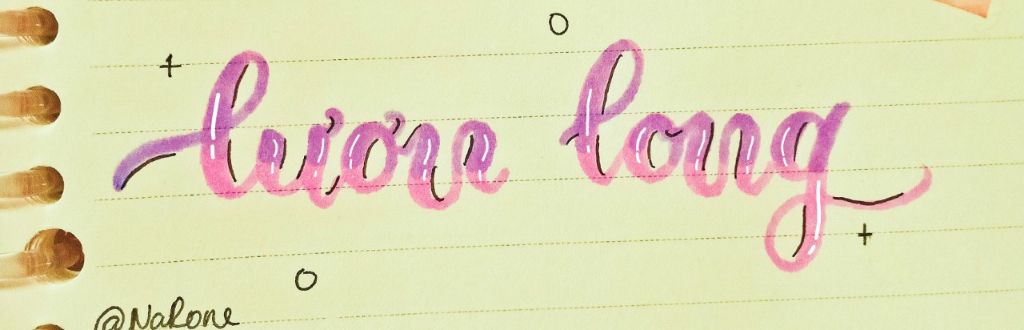 lươn long
@NaRone